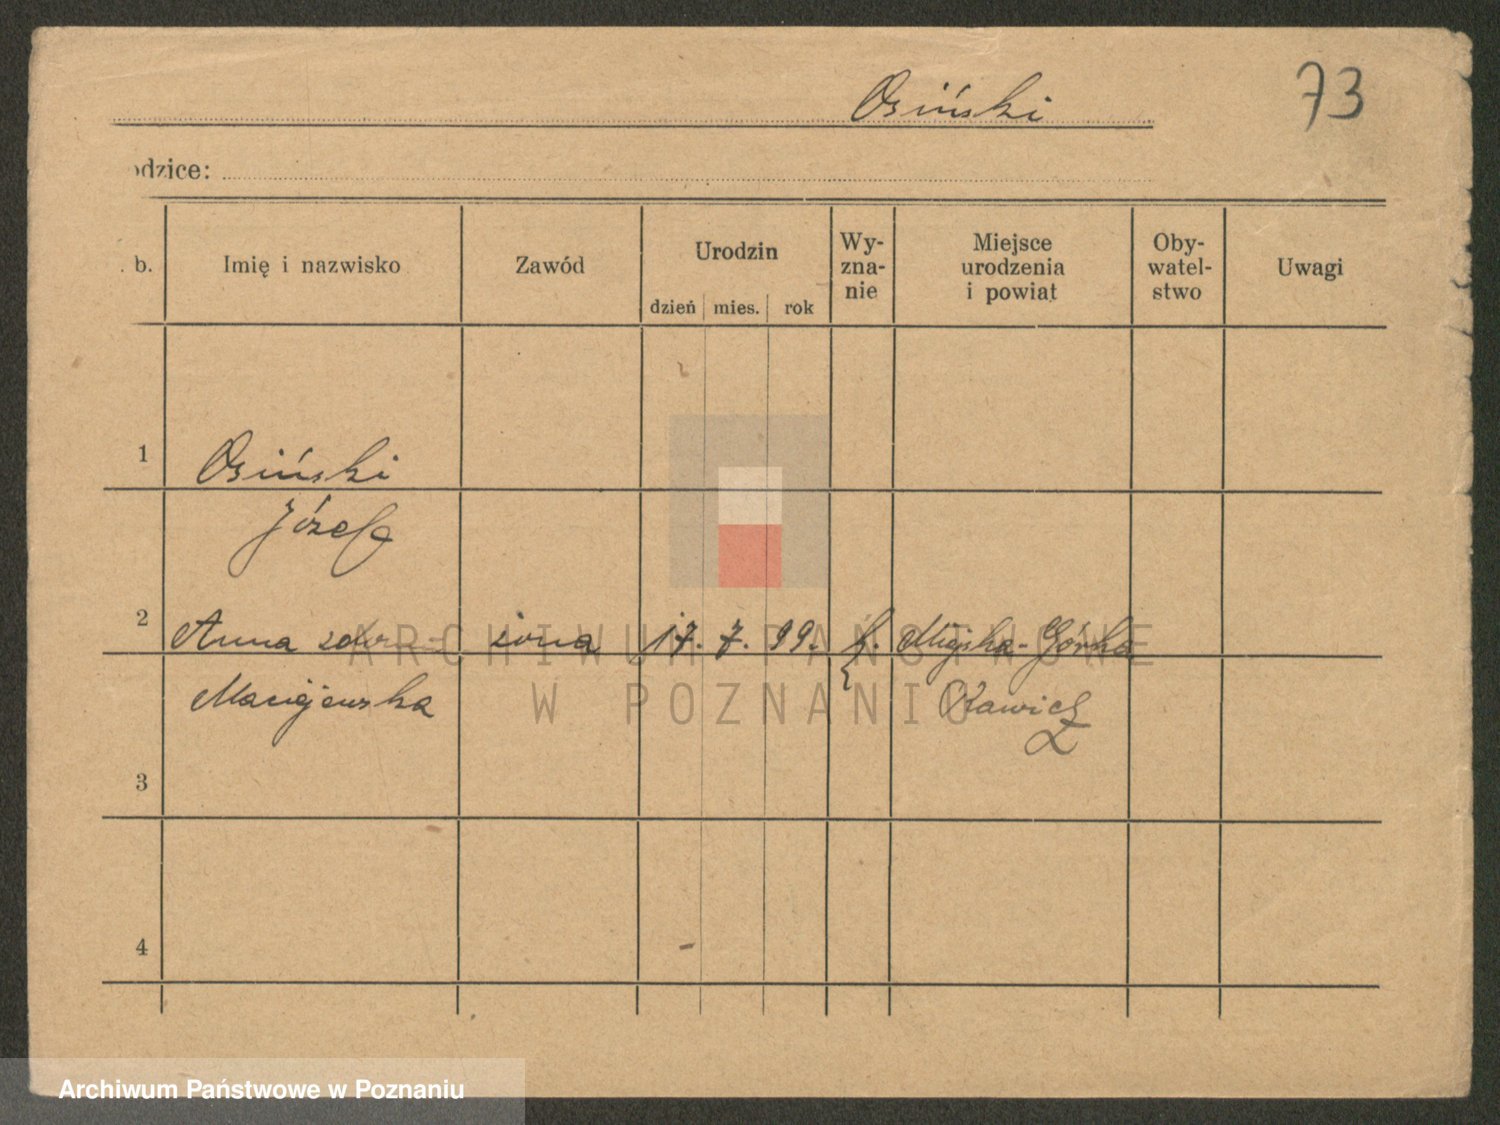 Osiński
73
odzice:
b. Imię i nazwisko Zawód Urodzin dzień mies. rok Wy-zna-nie Miejsce urodzenia i powiat Oby-watel-stwo Uwagi
1 Osiński
Józef
2 Anna żona 17. 7. 99. k. Miejska-Górka
Maciejewska Rawicz
3
4
ARCHIWUM PAŃSTWOWE
W POZNANIU
Archiwum Państwowe w Poznaniu